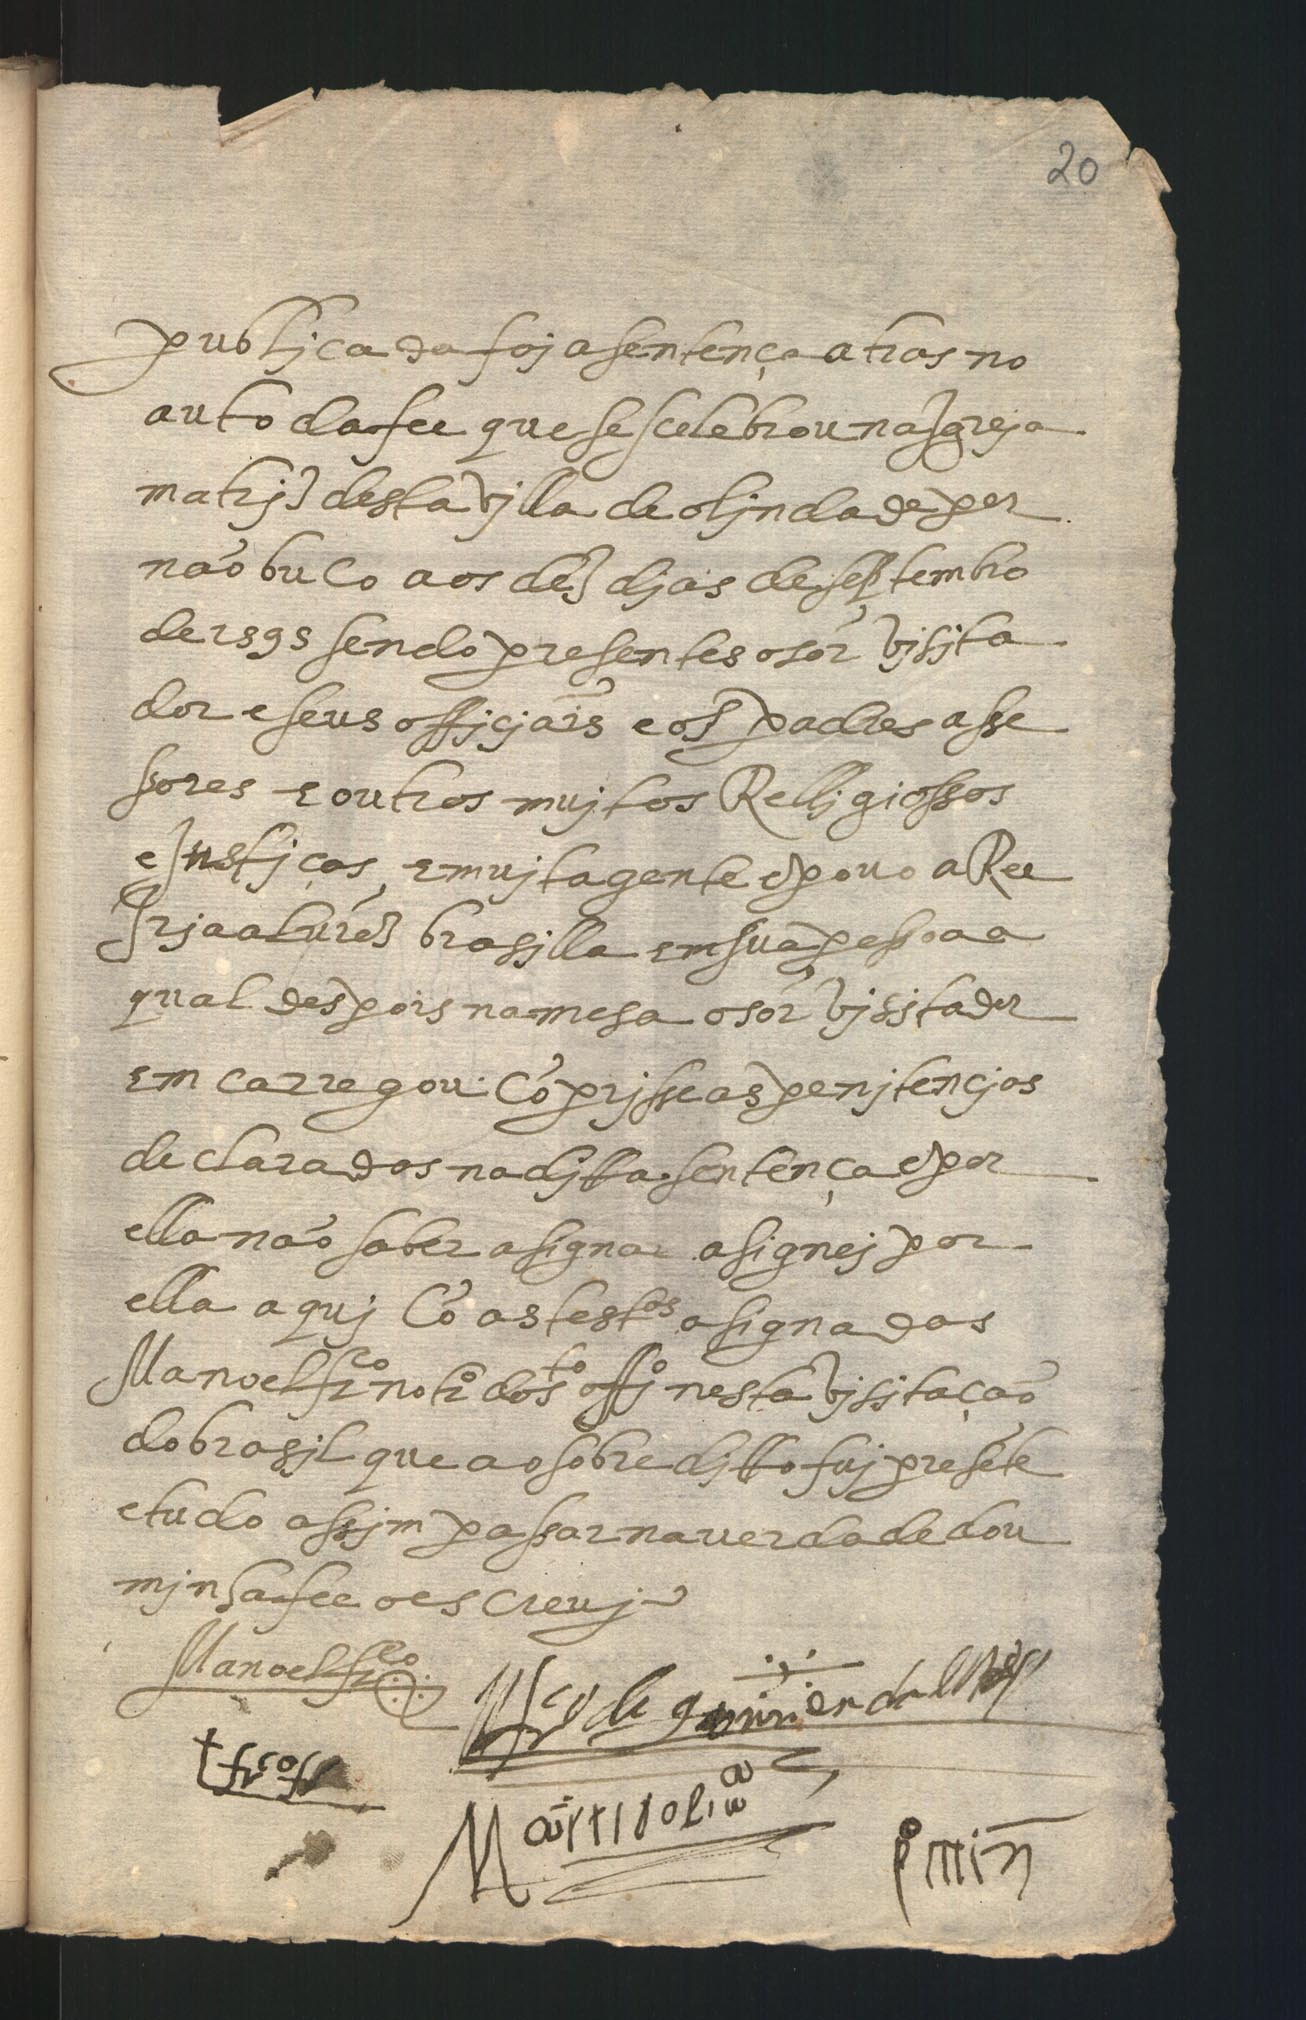 20
publjcada foj a sentença atras no
auto da fee que se scelebrou na Igreja
matrjz desta vjlla de oljnda de per
nãobuco aos dez djas de septembro
de 1595 sendo presentes o sor vjsjta
dor e seus offjcjais e os padres asse
ssores e outros mujtos Relljgiossos
e Justjças, e mujta gente e povo a Ree
brasjlla em sua pessoa a
qual despois na mesa o sor vjsjtador
emcarregou cõprjsse as penjtencjas
declaradas na djtta sentença e por
ella não saber asignar asignej por
ella aquj cõ as testas asignadas
Manoel frco notro do sto offo nesta vjsjtação
do brasjl que ao sobredjtto fuj presẽte
e tudo assjm passar na verdade dou
mjnha fee o escrevj
Manoel frco